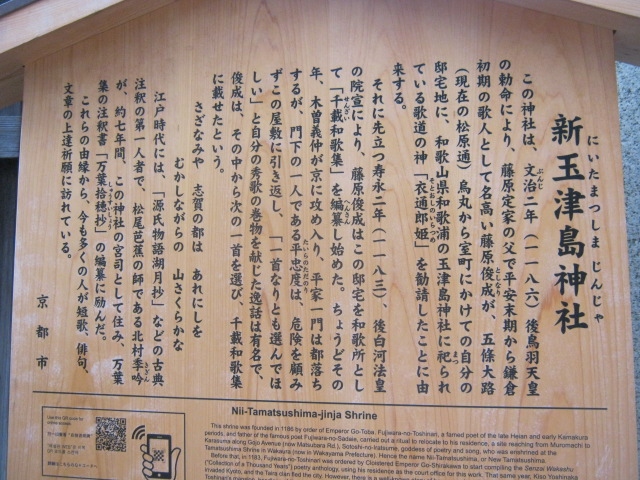 新玉津島神社
にいたまつしま じんじゃ
この神社は、文治二年(一一八六)後鳥羽天皇
の勅命により、藤原定家の父で平安末期から鎌倉
初期の歌人として名高い藤原俊成が、五條大路
(現在の松原通)烏丸から室町にかけての自分の
邸宅地に、和歌山県和歌浦の玉津島神社に祀られ
ている歌道の神「衣通郎姫」を勧請したことに由
来する。
それに先立つ寿永二年(一一八三)、後白河法皇
の院宣により、藤原俊成はこの邸宅を和歌所とし
て「千載和歌集」を編纂し始めた。ちょうどその
年、木曽義仲が京に攻め入り、平家一門は都落ち
するが、門下の一人である平忠度は、危険を顧み
ずこの屋敷に引き返し、「一首なりとも選んでほ
しい」と自分の秀歌の巻物を献じた逸話は有名で、
俊成は、その中から次の一首を選び、千載和歌集
に載せたという。
さざなみや 志賀の都は あれにしを
むかしながらの 山さくらかな
江戸時代には、「源氏物語湖月抄」などの古典
注釈の第一人者で、松尾芭蕉の師である北村季吟
が、約七年間、この神社の宮司として住み、万葉
集の注釈書「万葉拾穂抄」の編纂に励んだ。
これらの由縁から、今も多くの人が短歌、俳句、
文章の上達祈願に訪れている。
京都市
Nii-Tamatsushima-jinja Shrine
This shrine was founded in 1186 by order of Emperor Go-Toba. Fujiwara-no-Toshinari, a famed poet of the late Heian and early Kamakura
periods, and father of the famous poet Fujiwara-no-Sadaie, carried out a ritual to relocate to his residence, a site reaching from Muromachi to
Karasuma along Gojo Avenue (now Matsubara Rd.), Sotoshi-no-iratsume, goddess of poetry and song, who was enshrined at the
Tamatsushima Shrine in Wakaura (now in Wakayama Prefecture). Hence the name Nii-Tamatsushima, or New Tamatsushima.
Before that, in 1183, Fujiwara-no-Toshinari was ordered by Cloistered Emperor Go-Shirakawa to start compiling the Senzai Wakashu
("Collection of a Thousand Years") poetry anthology, using his residence as the court office for this work. That same year, Kiso Yoshinaka